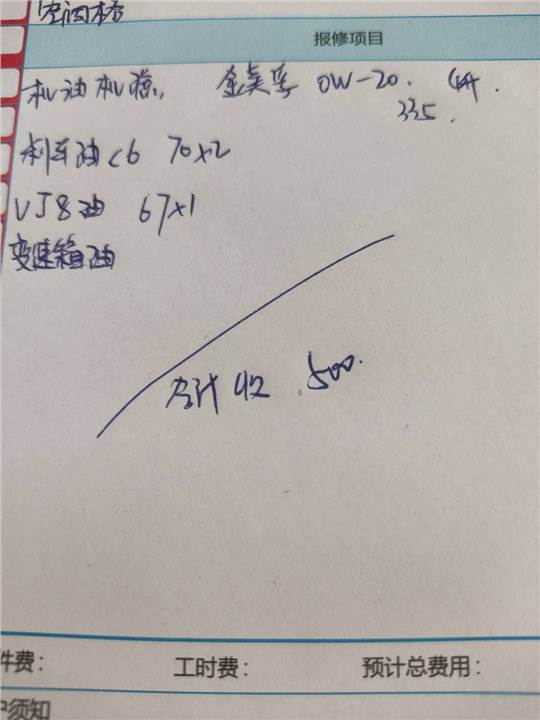 空调格
报修项目
机油机滤, 金美孚 0W-20. 4升.
335.
刹车油 C6 70x2
VJ8油 67x1
变速箱油
合计收 500.
件费: 工时费: 预计总费用:
户须知